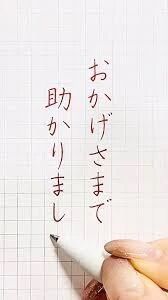 おかげさまで
助かりまし